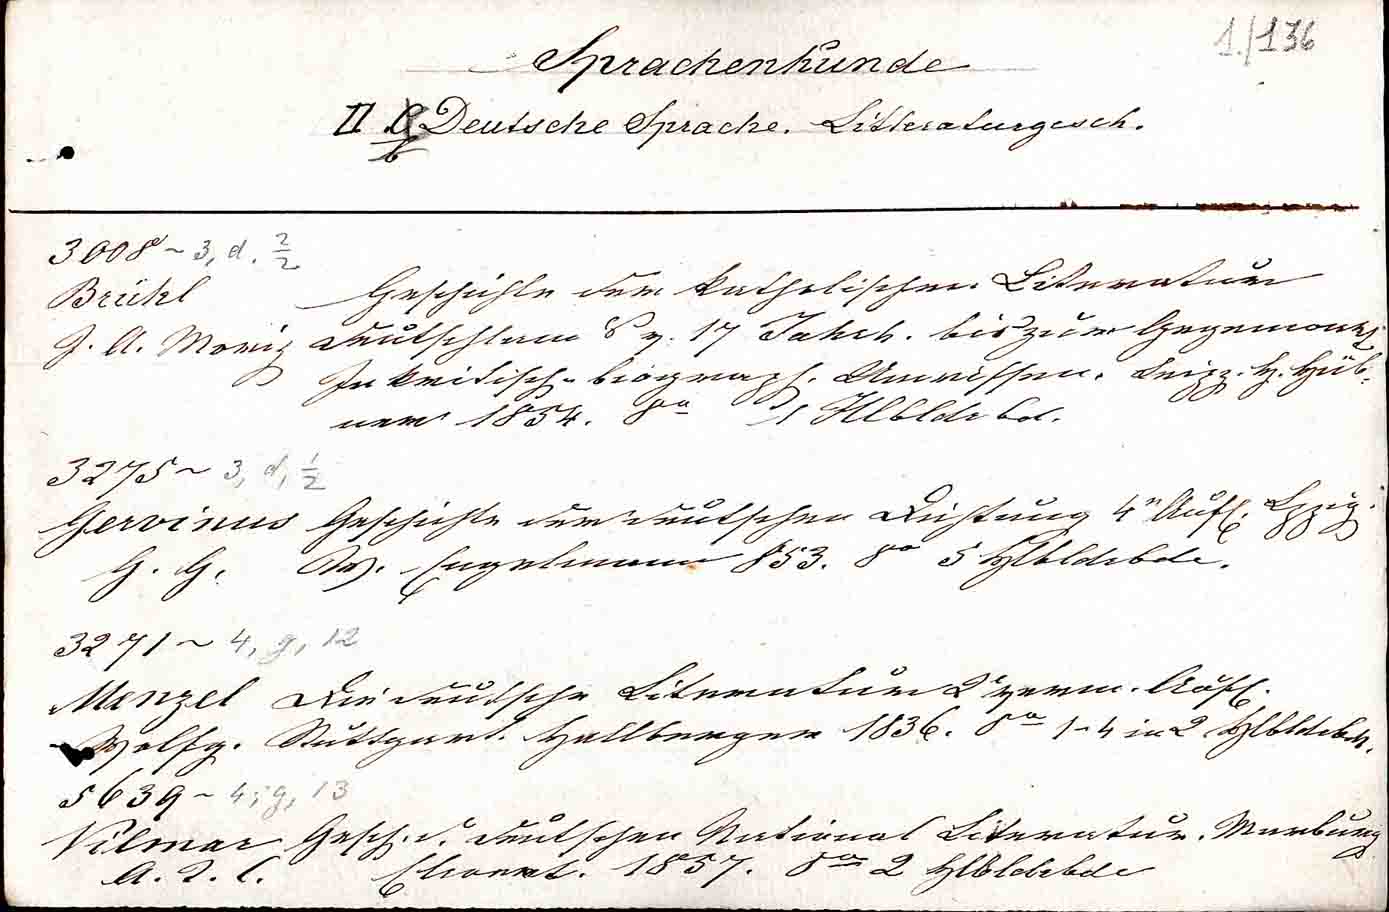 1./136
Sprachenkunde
II Deutsche Sprache. Litteraturgesch.
b
3008 ~ 3, d. 2/2
Brühl Geschichte der katholischen Literatur
J. A. Moriz Deutschlands v. 17 Jahrh. bis zur Gegenwart
In kritisch-biograph. Umrissen. Leipz. H. Hüb-
ner 1854. 8º 1 Hlbldrbd.
3275 ~ 3, d, 1/2
Gervinus Geschichte der deutschen Dichtung 4º Aufl. Lpzig.
G. G. W. Engelmann 853. 8º 5 Hlbldrbde.
3271 ~ 4, g, 12
Menzel Die deutsche Literatur 2º verm. Aufl.
Wolfg. Stuttgart. Hallberger 1836. 8º 1-4 in 2 Hlbldrbdn.
5639 ~ 4, g, 13
Vilmar Gesch. d. deutschen National Literatur. Marburg
A. F. C. Elwert. 1857. 8º 2 Hlbldrbde